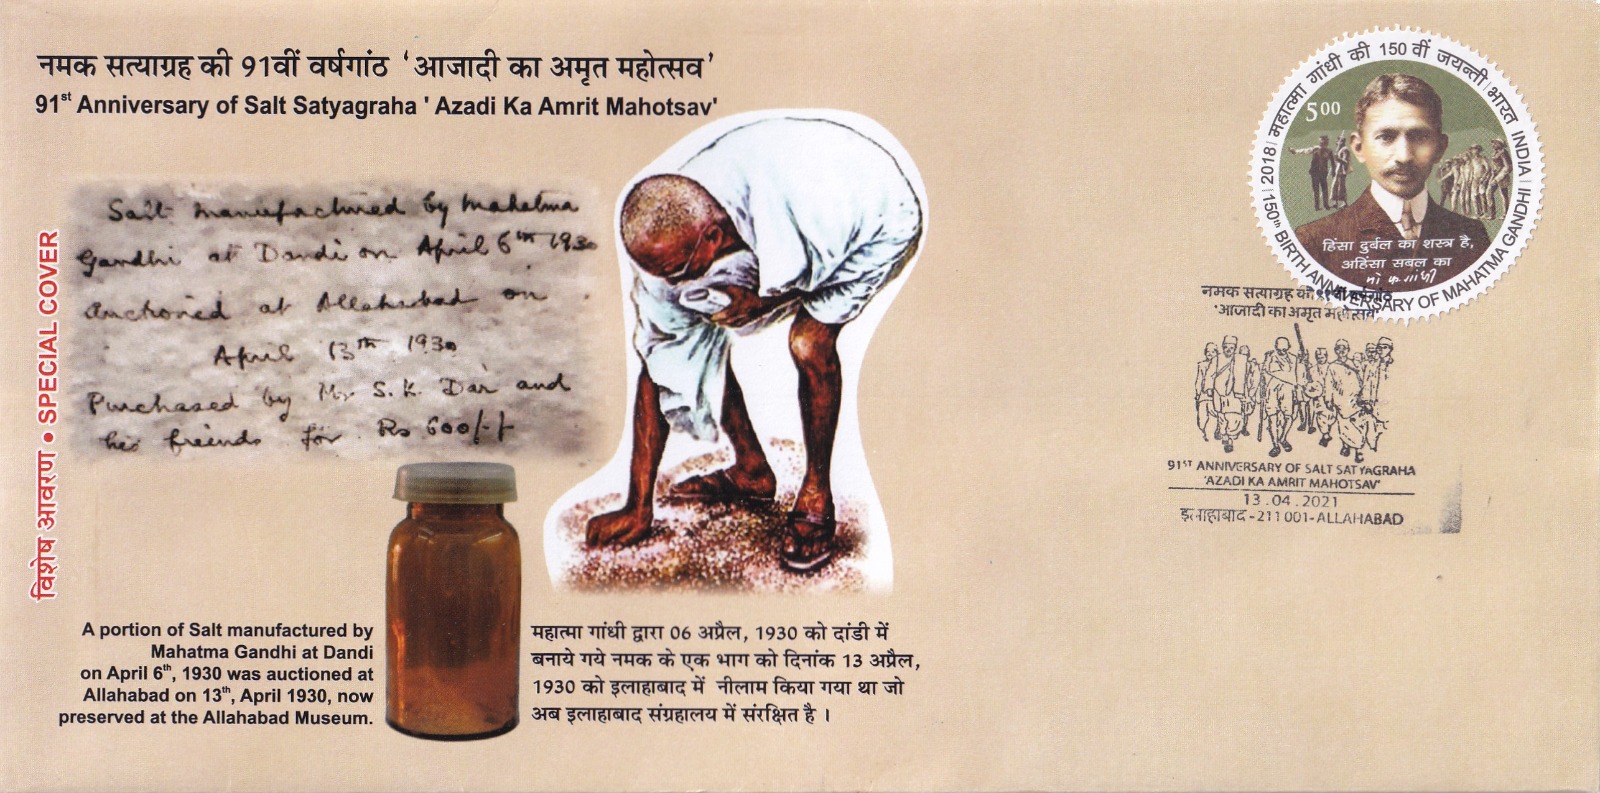 नमक सत्याग्रह की 91वीं वर्षगांठ ‘आजादी का अमृत महोत्सव’
91st Anniversary of Salt Satyagraha ' Azadi Ka Amrit Mahotsav'
विशेष आवरण • SPECIAL COVER
Salt manufactured by Mahatma
Gandhi at Dandi on April 6th 1930
Auctioned at Allahabad on
April 13th 1930
Purchased by Mr S. K. Dar and
his friends for Rs 600/-/-
A portion of Salt manufactured by
Mahatma Gandhi at Dandi
on April 6th, 1930 was auctioned at
Allahabad on 13th, April 1930, now
preserved at the Allahabad Museum.
महात्मा गांधी द्वारा 06 अप्रैल, 1930 को दांडी में
बनाये गये नमक के एक भाग को दिनांक 13 अप्रैल,
1930 को इलाहाबाद में नीलाम किया गया था जो
अब इलाहाबाद संग्रहालय में संरक्षित है ।
2018 महात्मा गांधी की 150 वीं जयन्ती भारत INDIA
150th BIRTH ANNIVERSARY OF MAHATMA GANDHI
500
हिंसा दुर्बल का शस्त्र है,
अहिंसा सबल का
मो क गांधी
नमक सत्याग्रह की ९१वीं वर्षगांठ
'आजादी का अमृत महोत्सव'
91ST ANNIVERSARY OF SALT SATYAGRAHA
'AZADI KA AMRIT MAHOTSAV'
13.04.2021
इलाहाबाद-211001-ALLAHABAD